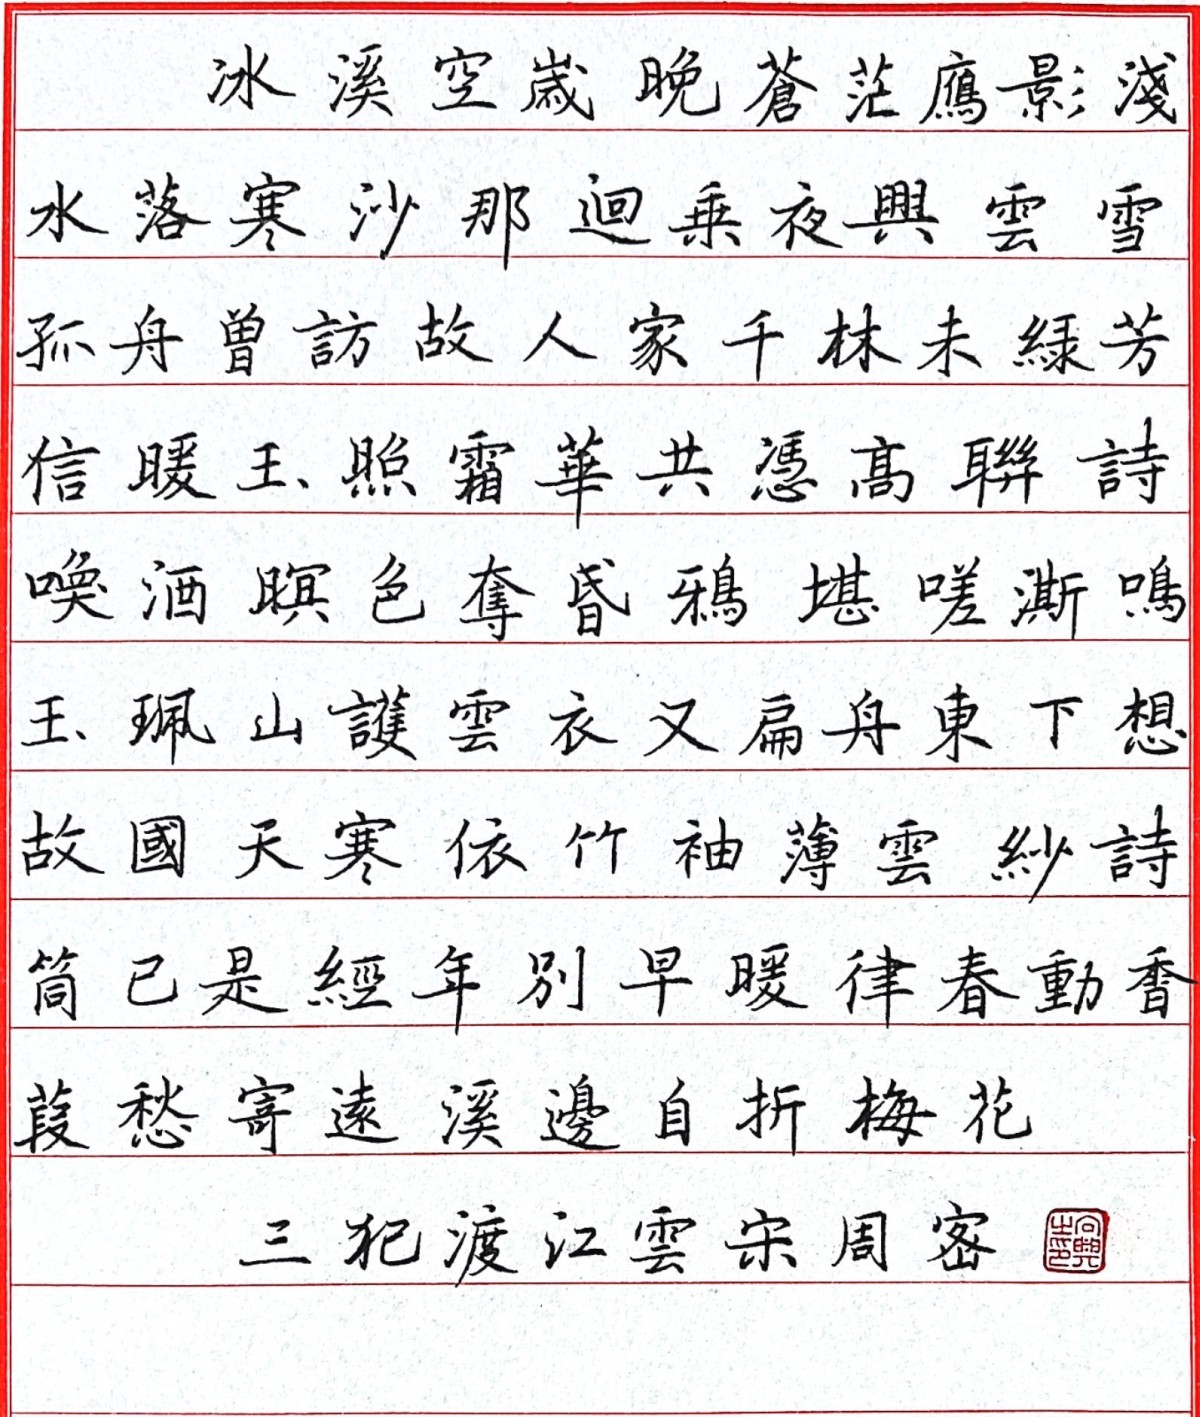 冰溪空嵗晚蒼茫鴈影淺
水落寒沙那迴乗夜興雲雪
孤舟曽訪故人家千林未緑芳
信暖玉照霜華共憑高聯詩
喚酒暝色奪昏鴉堪嗟澌鳴
玉珮山護雲衣又扁舟東下想
故國天寒依竹袖薄雲紗詩
筒已是經年別早暖律春動香
葭愁寄遠溪邊自折梅花
三犯渡江雲宋周密
向興之印